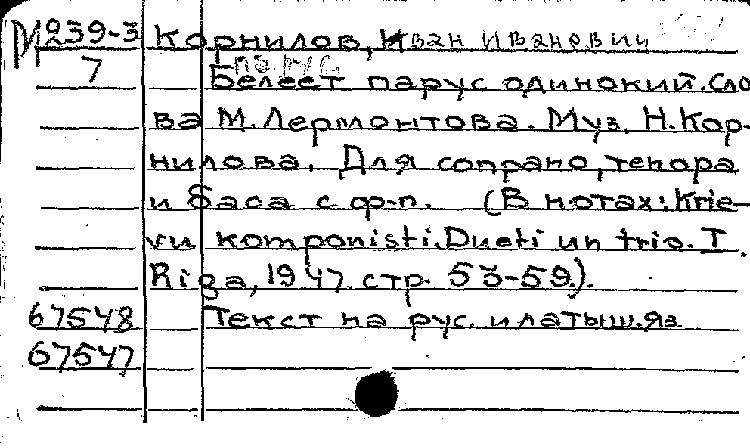 М239-3 Корнилов, Иван Иванович
7
Белеет парус одинокий. Сло
ва М. Лермонтова. Муз. Н. Кор-
нилова. Для сопрано, тенора
и баса с ф-п. (В нотах: Krie-
vu komponisti. Dueti un trio. I.
Riga, 1947 стр. 53-59).
67548 Текст на рус. и латыш. яз
67547